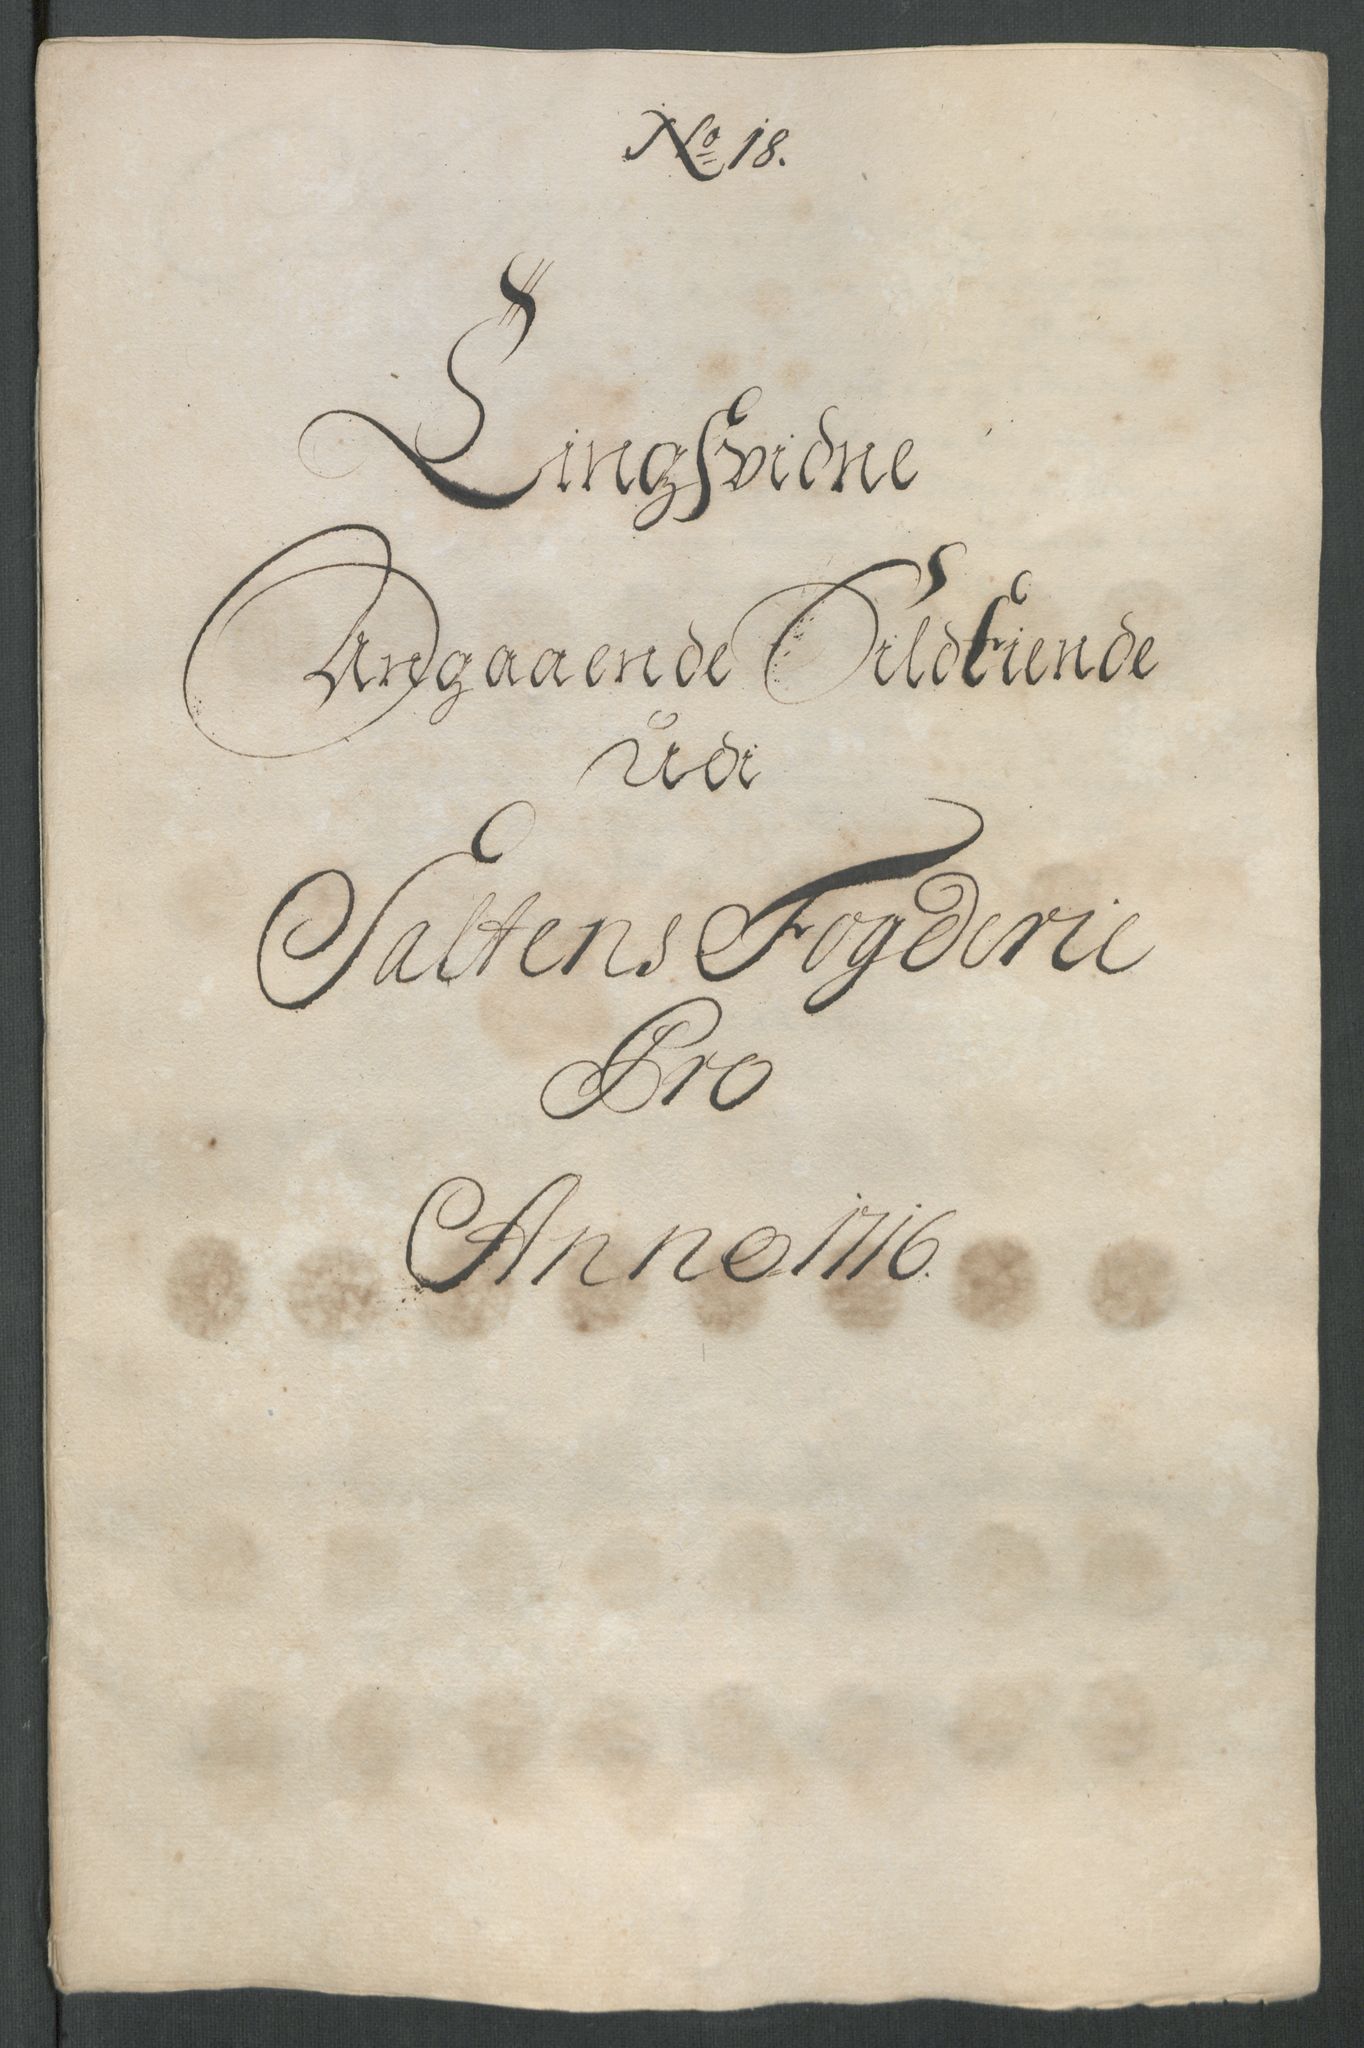 No 18.
Tingsvidne
Angaaende Sildtiende
udi
Saltens Fogderie
Pro
Anno 1716.